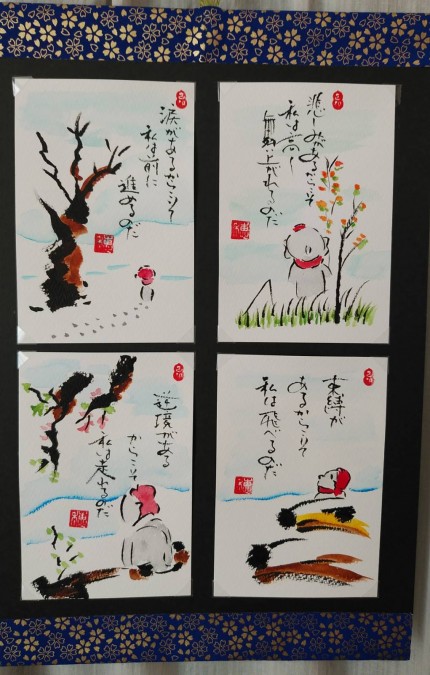 悲しみがあるからこそ
私は高く
舞い上がれるのだ
涙があるからこそ
私は前に
進めるのだ
束縛が
あるからこそ
私は飛べるのだ
逆境がある
からこそ
私は走れるのだ